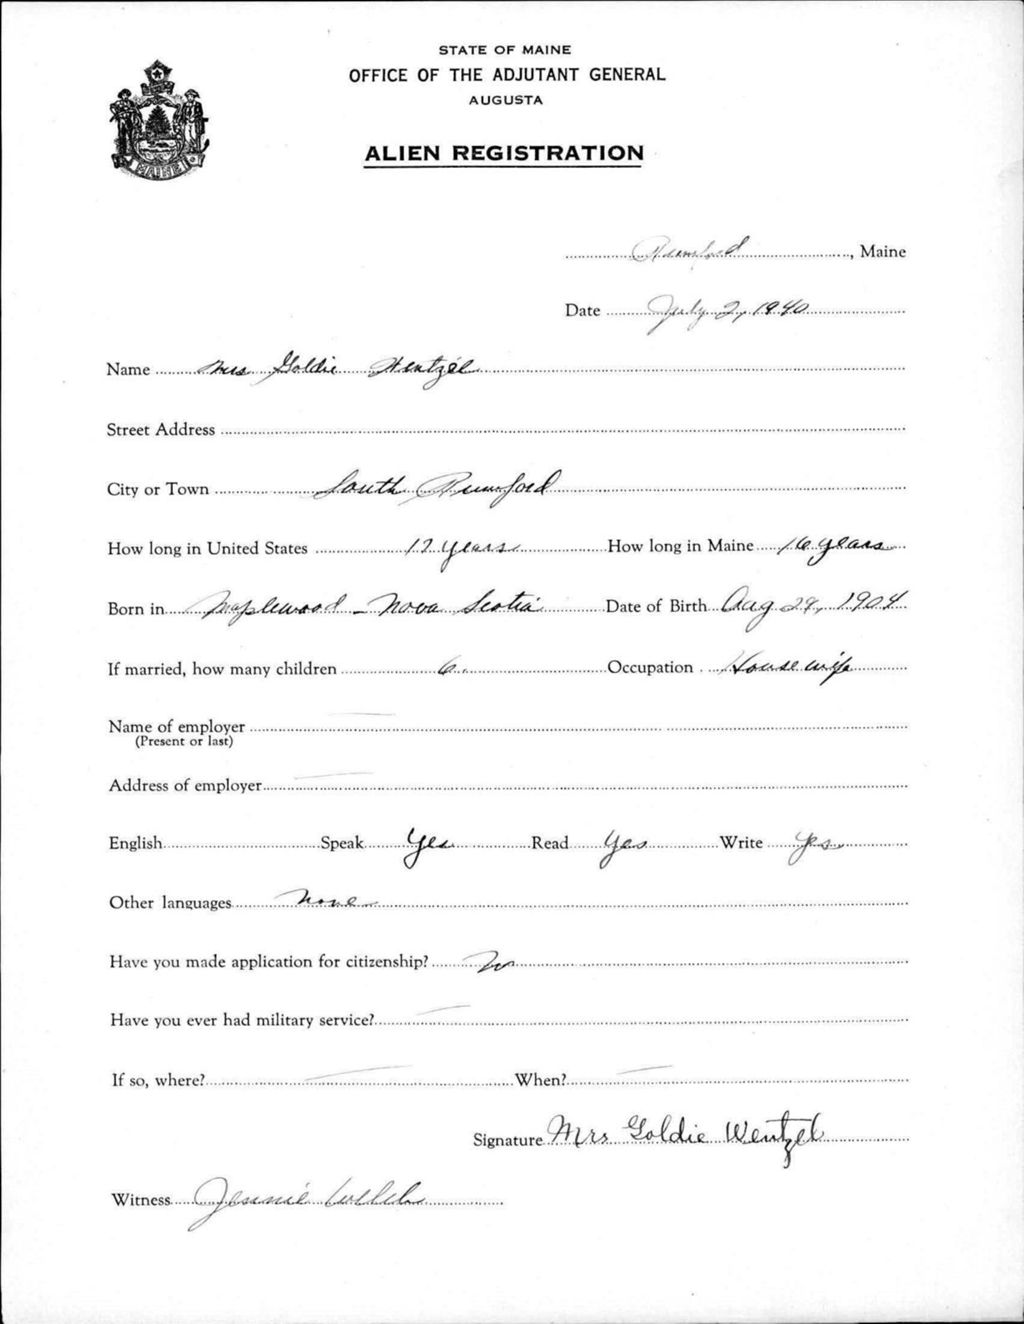 STATE OF MAINE
OFFICE OF THE ADJUTANT GENERAL
AUGUSTA
ALIEN REGISTRATION
MAINE
Rumford, Maine
Date July 2, 1940
Name Mrs Goldie Wentzel
Street Address
City or Town South Rumford
How long in United States 17 years How long in Maine 16 years
Born in Maplewood - Nova Scotia Date of Birth Aug 29, 1904
If married, how many children 6 Occupation Housewife
Name of employer
(Present or last)
Address of employer
English Speak Yes Read Yes Write Yes
Other languages None
Have you made application for citizenship? No
Have you ever had military service?
If so, where? When?
Signature Mrs Goldie Wentzel
Witness Jennie Welch